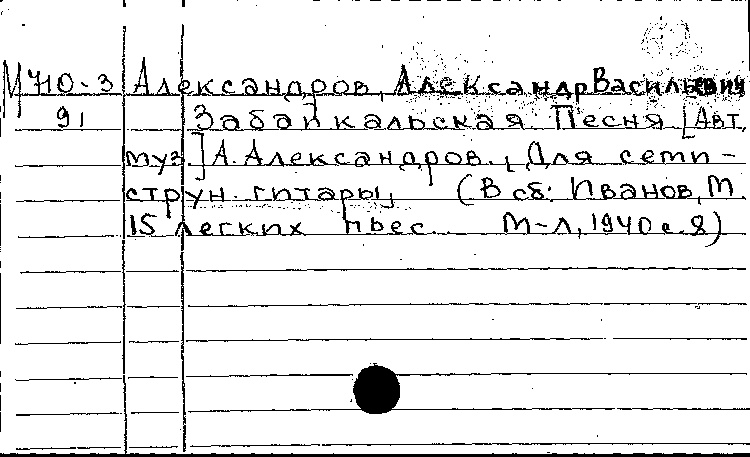 М 710-3 Александров, Александр Васильевич
91 Забайкальская. Песня [Авт.
муз.] А. Александров., Для семи-
струн. гитары, (В сб: Иванов, М.
15 легких пьес... М-Л, 1940 с. 8)